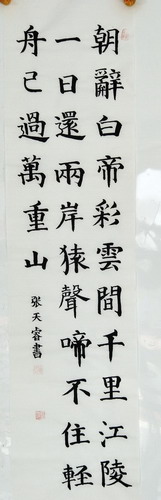 朝辭白帝彩雲間千里江陵
一日還兩岸猿聲啼不住輕
舟已過萬重山
張天睿書